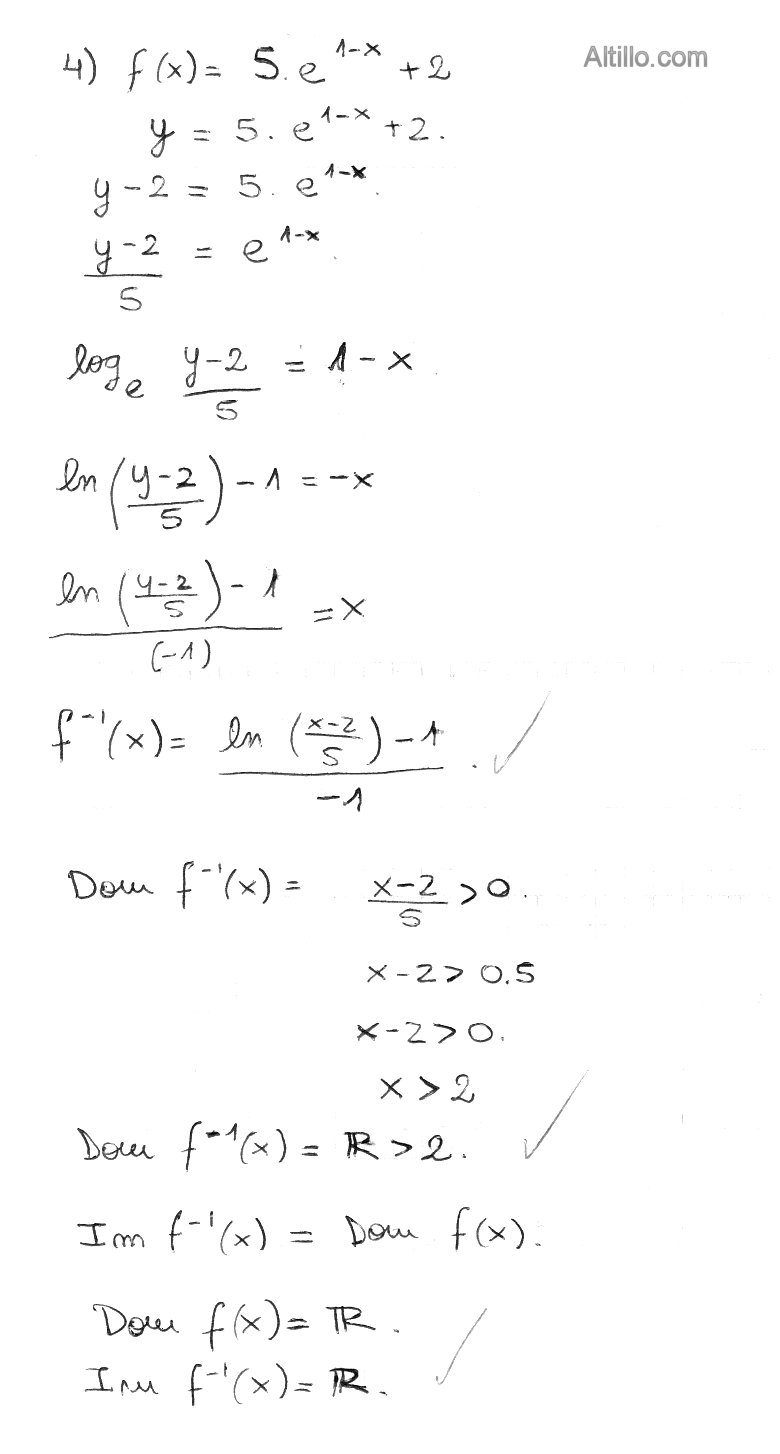 Altillo.com
4) f(x) = 5. e^{1-x} + 2
y = 5. e^{1-x} + 2.
y - 2 = 5. e^{1-x}.
\frac{y-2}{5} = e^{1-x}.
log_e \frac{y-2}{5} = 1 - x
ln (\frac{y-2}{5}) - 1 = -x
\frac{ln (\frac{y-2}{5}) - 1}{(-1)} = x
f^{-1}(x) = \frac{ln (\frac{x-2}{5}) - 1}{-1}. ✓
Dom f^{-1}(x) = \frac{x-2}{5} > 0.
x - 2 > 0.5
x - 2 > 0.
x > 2
Dom f^{-1}(x) = ℝ > 2. ✓
Im f^{-1}(x) = Dom f(x).
Dom f(x) = ℝ.
Im f^{-1}(x) = ℝ. ✓